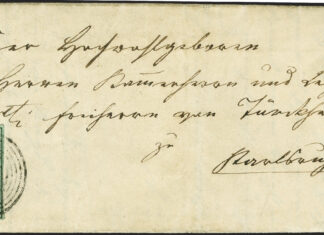 Hochwohlgeboren
Herren Kammerherrn und Le
Freiherrn von Türckhe
zu
Karlsru